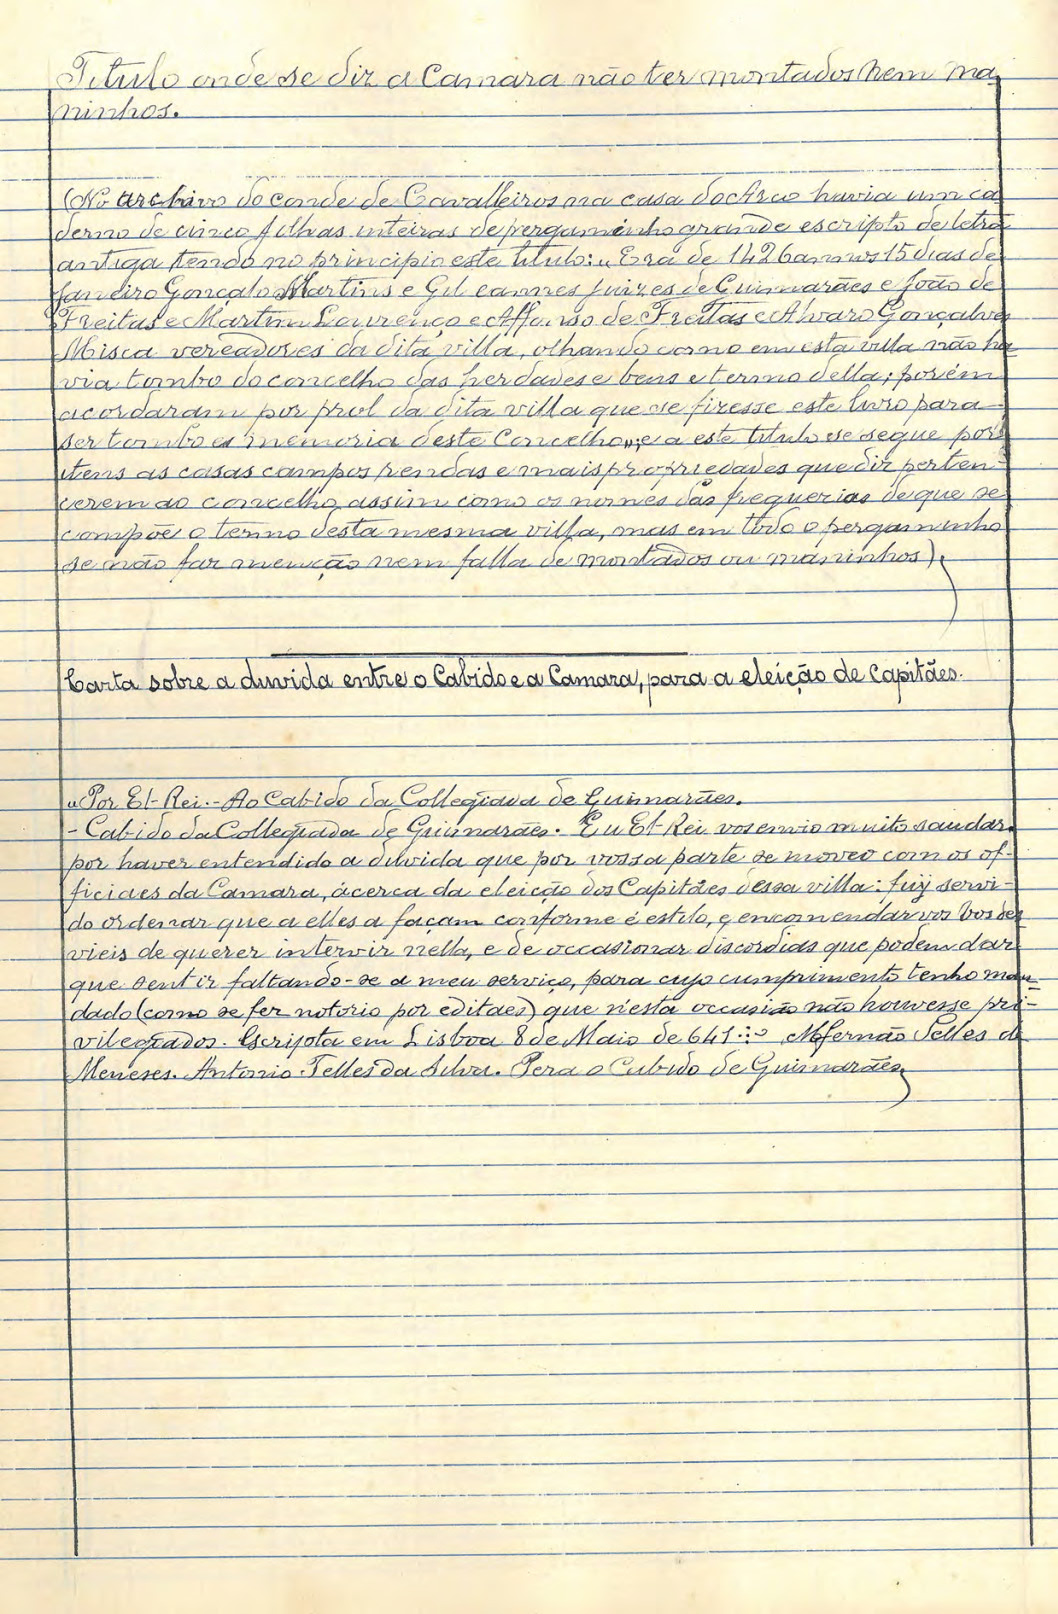 Titulo onde se diz a Camara não ter montados nem ma
ninhos.
(No archivo do conde de Cavalleiros na casa do Arco havia um ca
derno de cinco folhas inteiras de pergaminho grande escripto de letra
antiga tendo no principio este titulo: „Era de 1426 annos 15 dias de
Janeiro Gonçalo Martins e Gil eannes juizes de Guimarães e João de
Freitas e Martim Lourenço e Affonso de Freitas e Alvaro Gonçalves
Misca vereadores da dita villa, olhando como em esta villa não ha
via tombo do concelho das herdades e bens e termo della; porém
acordaram por prol da dita villa que se fizesse este livro para
ser tombo e memoria deste Concelho„; e a este titulo se segue por
itens as casas campos rendas e mais propriedades que diz perten-
cerem ao concelho, assim como os nomes das freguezias de que se
compõe o termo desta mesma villa, mas em todo o pergaminho
se não faz menção nem falla de montados ou maninhos).
Carta sobre a duvida entre o Cabido e a Camara, para a eleição de Capitães.
„Por El-Rei.- Ao Cabido da Collegiada de Guimarães.
- Cabido da Collegiada de Guimarães. Eu El-Rei vos envio muito saudar.
por haver entendido a duvida que por vossa parte se moveo com os of-
ficiaes da Camara, ácerca da eleição dos Capitães dessa villa: fuÿ servi-
do ordenar que a elles a façam conforme é estilo, e encomendar vos vos des
vieis de querer intervir nella, e de occasionar discordias que podem dar
que sentir faltando-se a meu serviço, para cujo cumprimento tenho man-
dado (como se fez notorio por editaes) que n'esta occasião não houvesse pri-
vilegiados. Escripta em Lisboa 8 de Maio de 641 Fernão Telles de
Meneses. Antonio Telles da Silva. Pera o Cabido de Guimarães